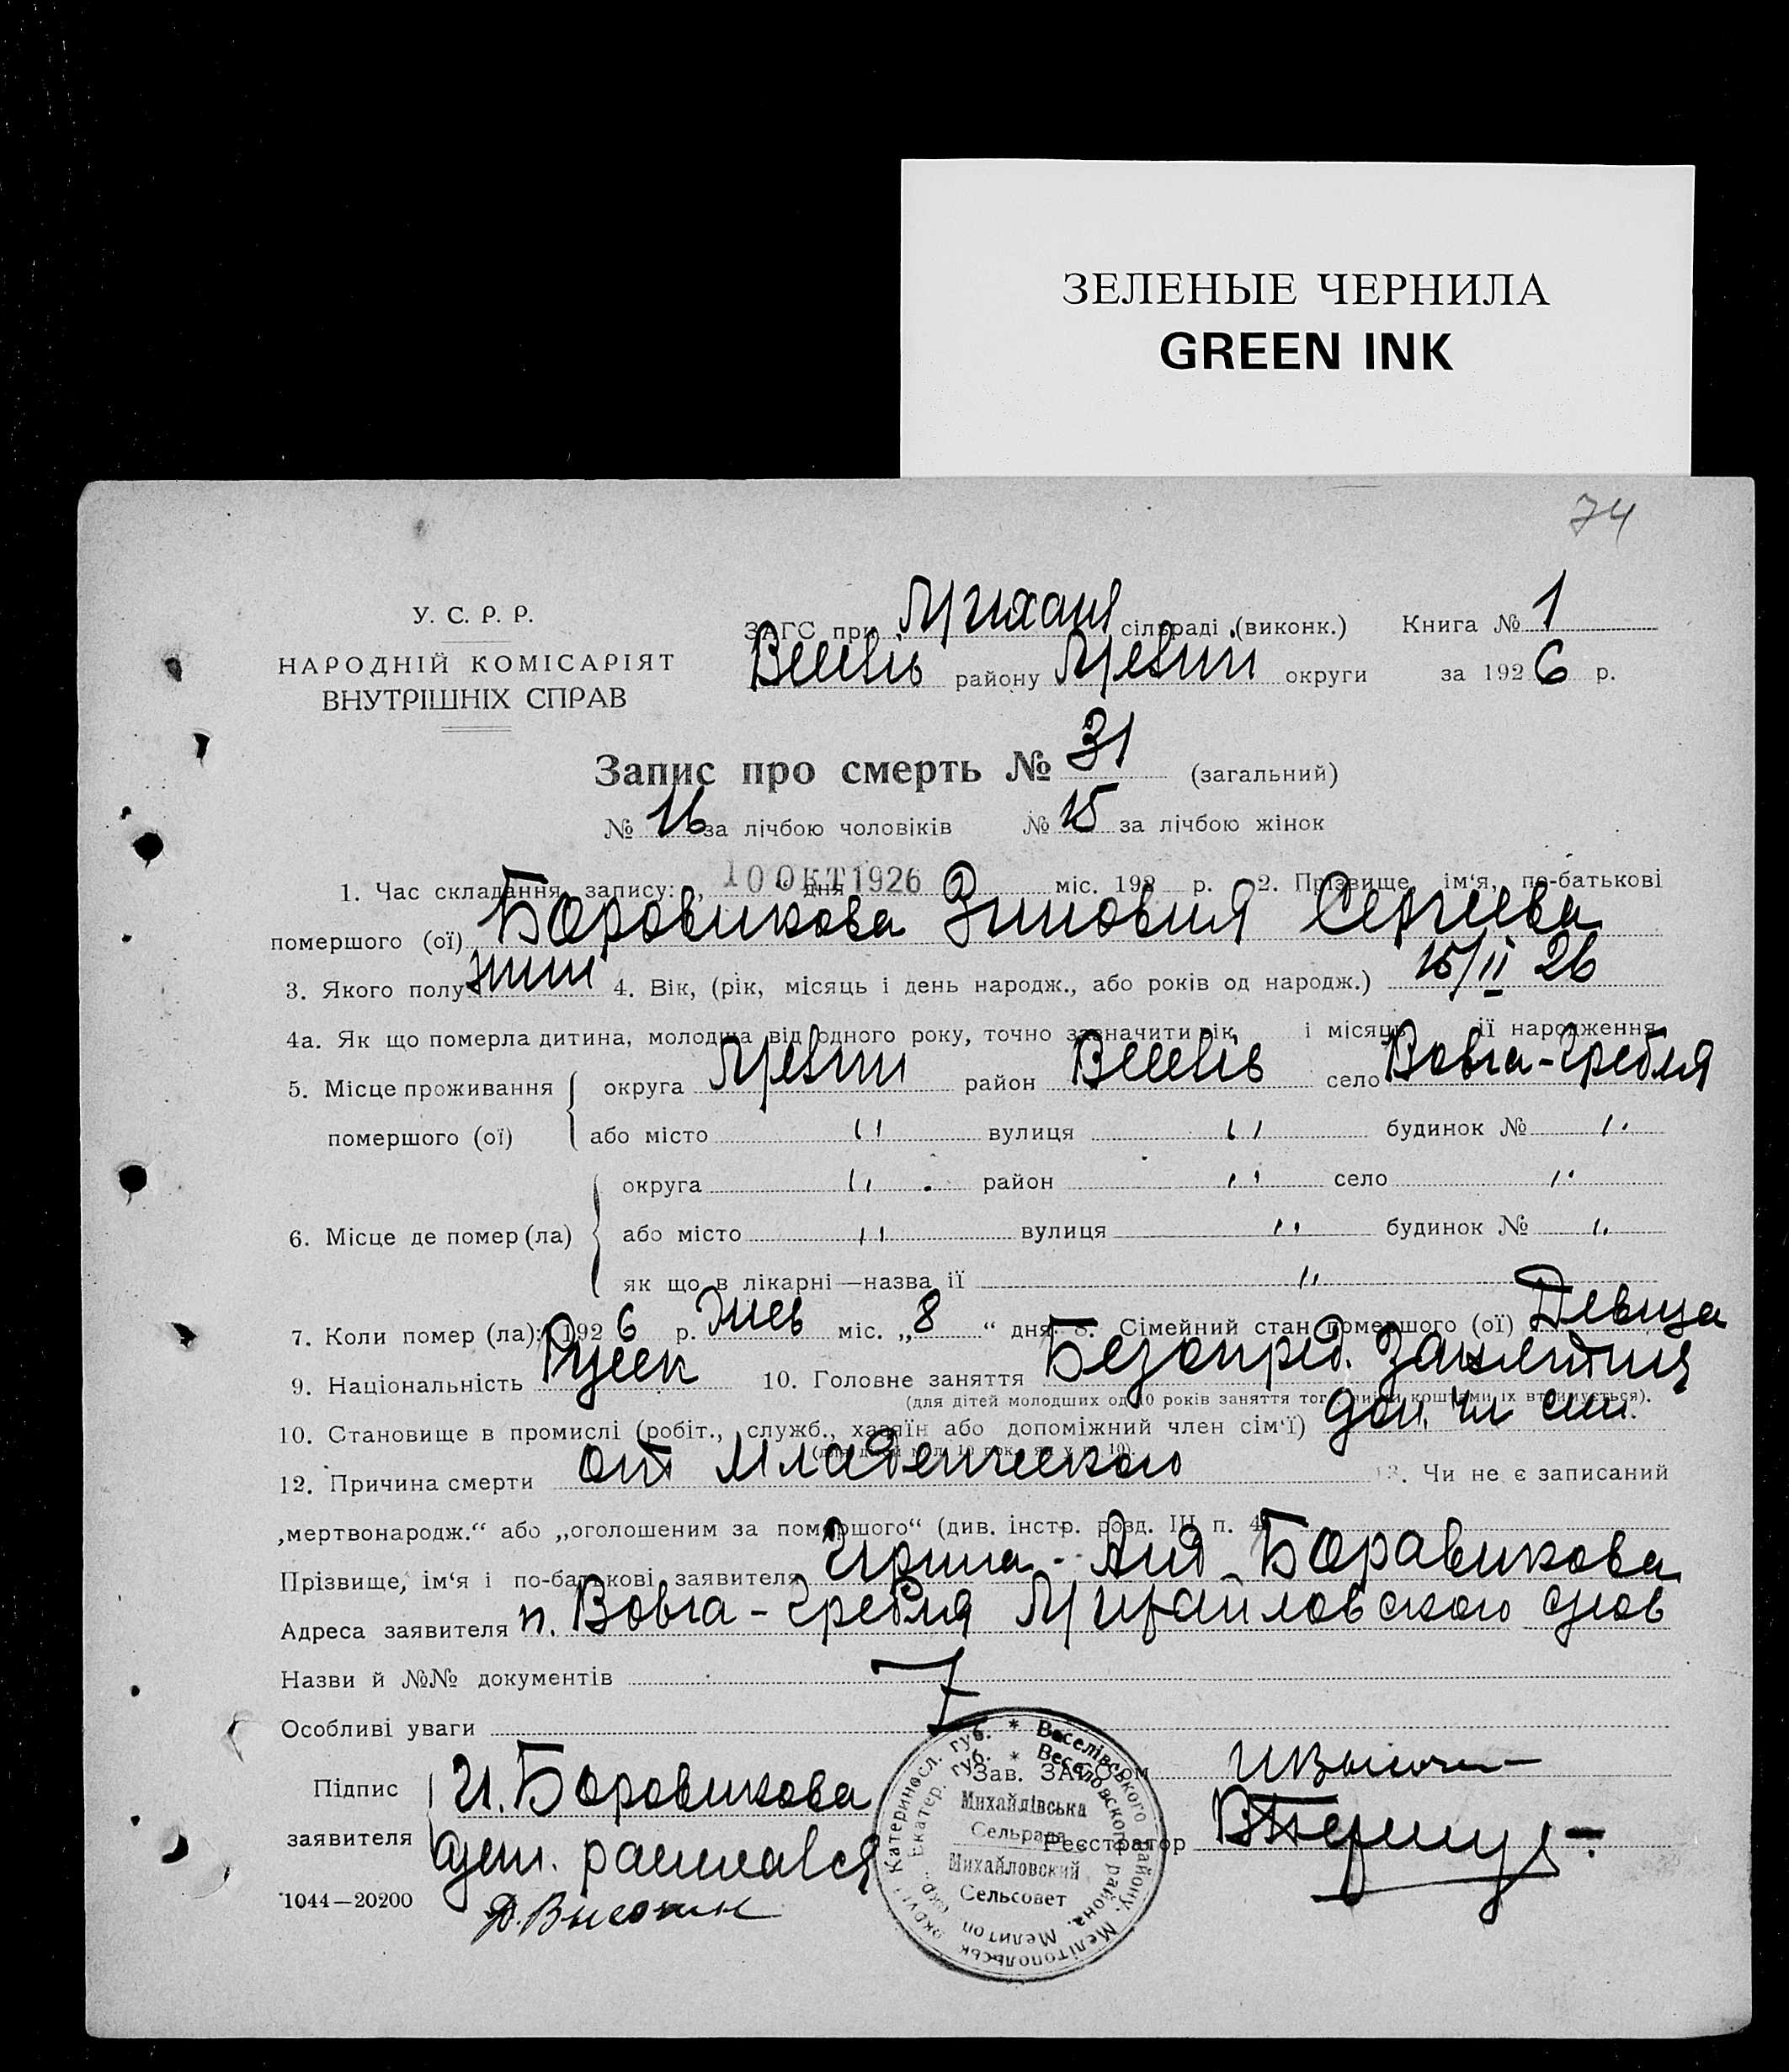 ЗЕЛЕНЫЕ ЧЕРНИЛА
GREEN INK
74
У. С. Р. Р.
НАРОДНІЙ КОМІСАРІЯТ
ВНУТРІШНІХ СПРАВ
ЗАГС при Михайл сільраді (виконк.) Книга № 1
району округи за 1926 р.
Запис про смерть № 31 (загальний)
№ 16 за лічбою чоловіків № 15 за лічбою жінок
1. Час складання запису: „ 10 ОКТ 1926 дня міс. 192 р. 2. Прізвище, ім‘я, по-батькові
помершого (ої) Боровикова Зиновия Сергеева
3. Якого полу жин 4. Вік, (рік, місяць і день народж., або років од народж.) 15/II 26
4а. Як що померла дитина, молодша від одного року, точно зазначити рік і місяць її народження
5. Місце проживання помершого (ої) округа район село Вовча-Гребля
або місто " вулиця " будинок № "
6. Місце де помер (ла) округа " район " село "
або місто " вулиця " будинок № "
як що в лікарні—назва її "
7. Коли помер (ла): 1926 р. міс. „8“ дня 8. Сімейний стан помершого (ої) Девица
9. Національність Руск 10. Головне заняття Безопред. Занятия
(для дітей молодших од 10 років заняття того, чиїми коштами їх втримується).
10. Становище в промислі (робіт., служб., хазяїн або допоміжний член сім‘ї) доп. чл сем.
12. Причина смерти от Младенческого 13. Чи не є записаний
„мертвонародж.“ або „оголошеним за помершого“ (див. інстр. розд. III п. 4)
Прізвище, ім‘я і по-батькові заявителя Ирина Боравикова
Адреса заявителя п. Вовча-Гребля Михайловского
Назви й №№ документів
Особливі уваги
Підпис заявителя И. Боровикова
Зав. ЗАГС‘ом
Реєстратор
1044—20200
Катериносл. губ. * Веселівського району, Мелітопольськ округи
Екатер. губ. * Веселовского района, Мелитоп окр.
Михайлівська
Сельрада
Михайловский
Сельсовет